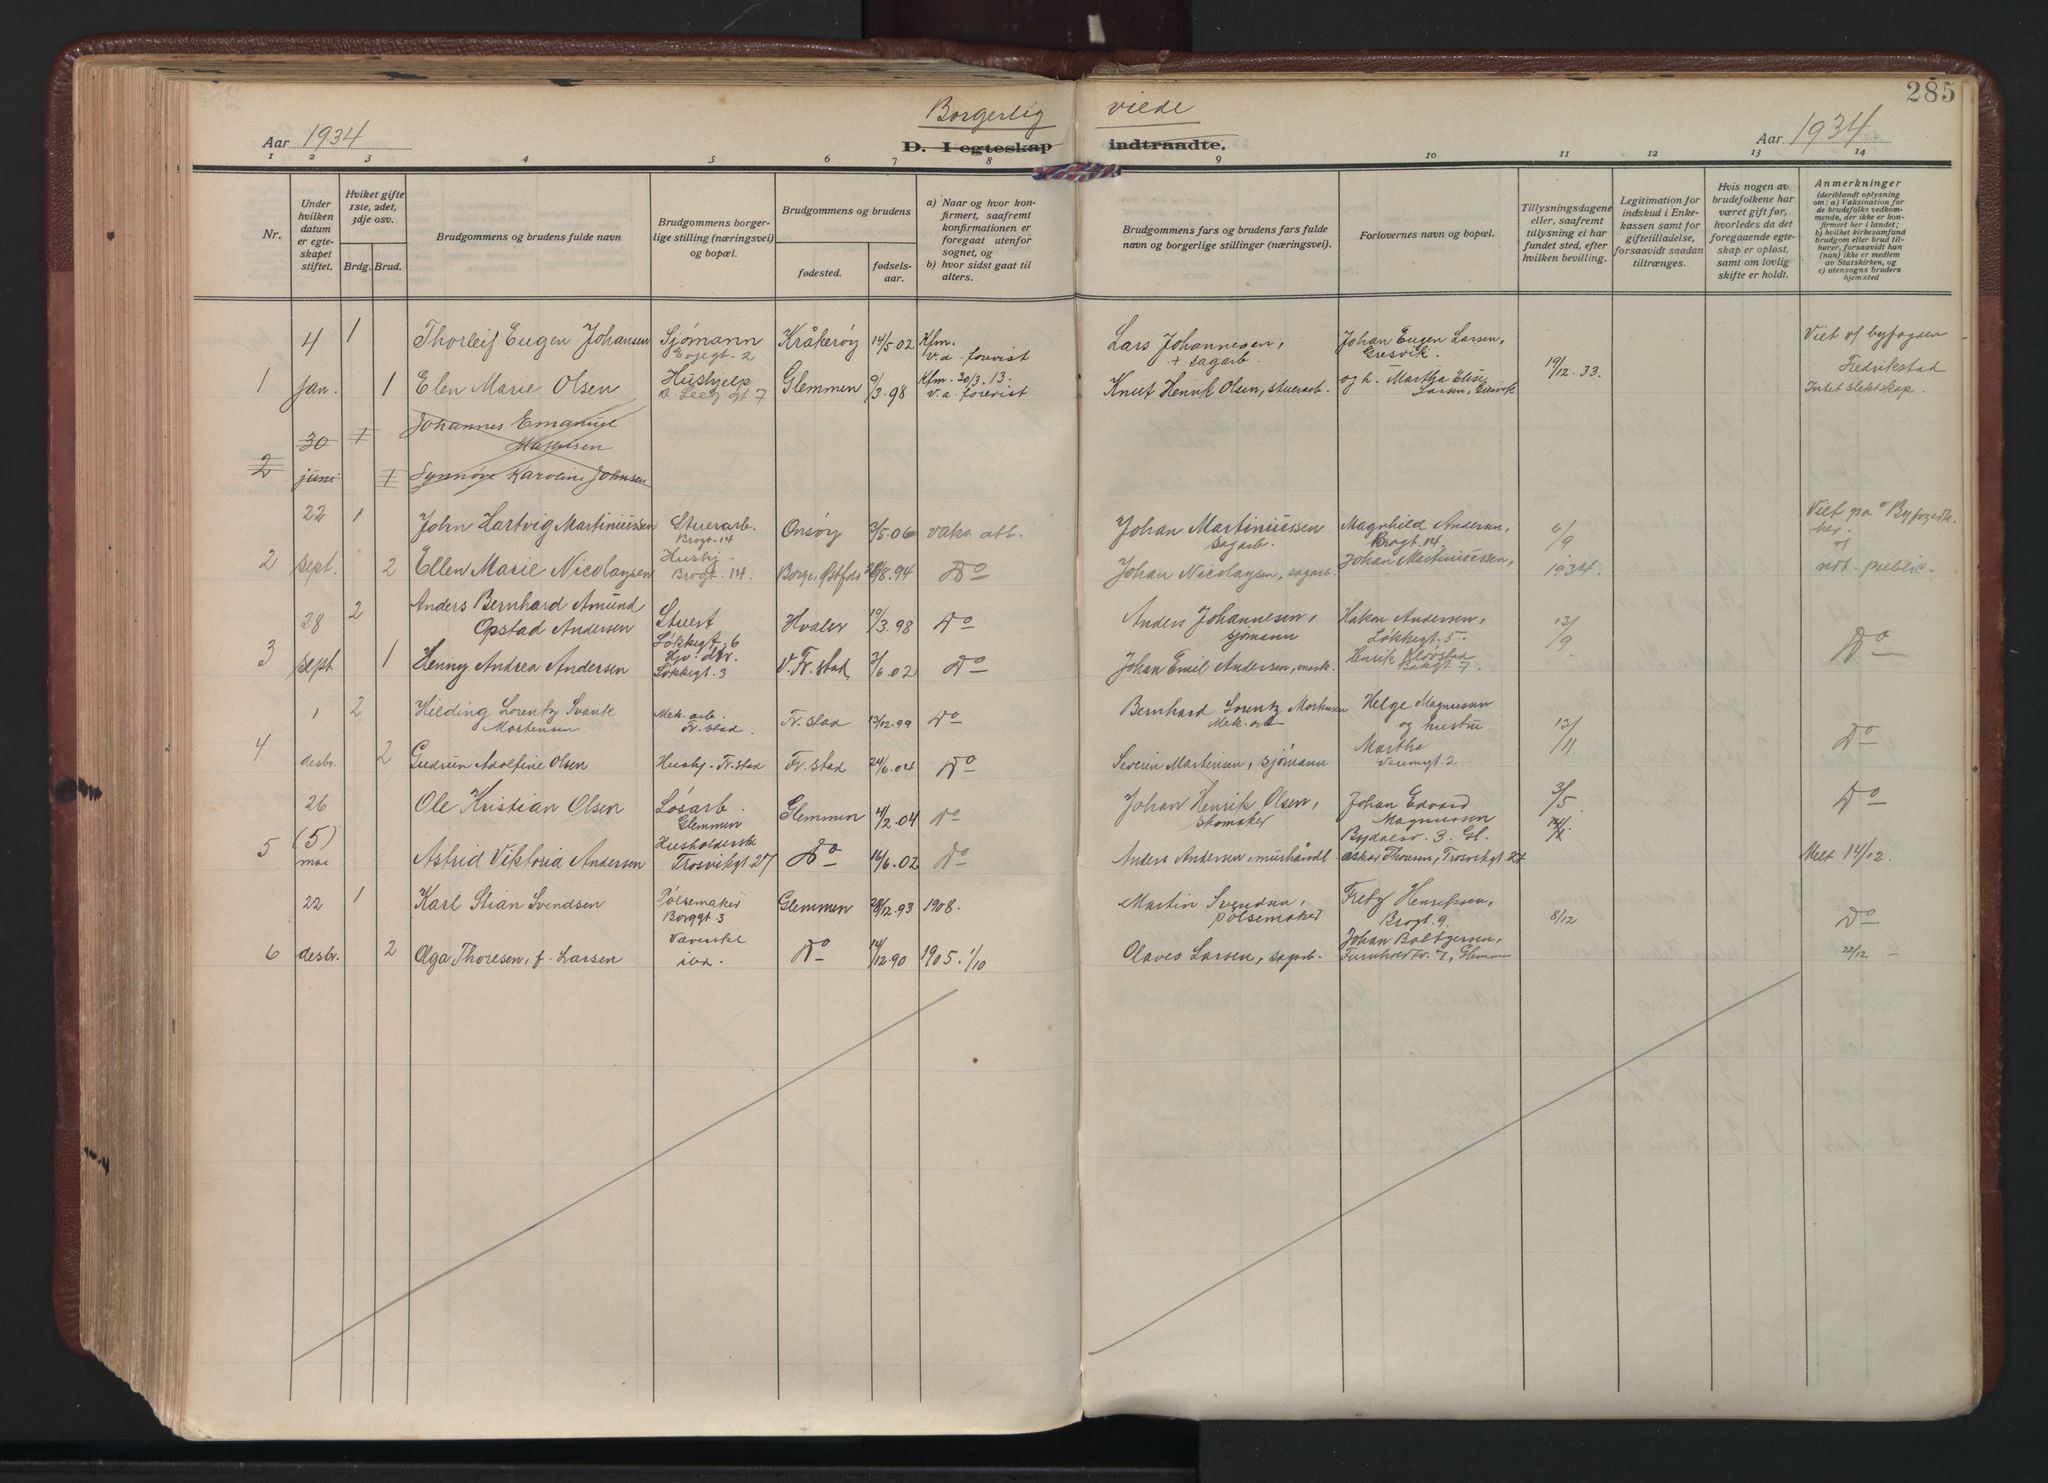 285
Borgerlig viede
Aar 1934
D. I egteskap indtraadte.
Aar 1934
1 2 3 4 5 6 7 8 9 10 11 12 13 14
Nr.
Under hvilken datum er egteskapet stiftet.
Hviket gifte 1ste, 2det, 3dje osv.
Brdg. Brud.
Brudgommens og brudens fulde navn
Brudgommens borgerlige stilling (næringsvei) og bopæl.
Brudgommens og brudens
fødested.
fødselsaar.
a) Naar og hvor konfirmert, saafremt konfirmationen er foregaat utenfor sognet, og
b) hvor sidst gaat til alters.
Brudgommens fars og brudens fars fulde navn og borgerlige stillinger (næringsvei).
Forlovernes navn og bopæl.
Tillysningsdagene eller, saafremt tillysning ei har fundet sted, efter hvilken bevilling.
Legitimation for indskud i Enkekassen samt for giftetilladelse, forsaavidt saadan tiltrænges.
Hvis nogen av brudefolkene har været gift før, hvorledes da det foregaaende egteskap er opløst, samt om lovlig skifte er holdt.
Anmerkninger
(deriblandt oplysning om: a) Vaksination for de brudefolks vedkommende, der ikke er konfirmert her i landet; b) hvilket kirkesamfund brudgom eller brud tilhører, forsaavidt han (hun) ikke er medlem av Statskirken, og c) utensogns bruders hjemsted
4 1 Thorleif Eugen Johansen Sjømann Kråkerøy 14/5.02 Kfm. v.a. forevist Lars Johannesen, + sagarb. Johan Eugen Larsen, Gresvik. 19/12.33. Viet af byfogden Fredrikstad
1 jan. 1 Elen Marie Olsen Hushjelp Glemmen 9/3.98 Kfm. 30/3.13. v.a. forevist Knut Henrik Olsen, stuerarb. og h. Martha Elise Larsen, Gresvik Intet slektskap.
30 1 Johannes Emanuel
2 juni 1 Synnøve Karoline Johnsen
22 1 John Hartvig Martiniussen Stuerarb. Brogt. 14 Onsøy 3/5.06 vaks. att. Johan Martiniussen sagarb. Magnhild Andersen, Brogt. 14 6/9 Viet på Byfogedk.
2 sept. 2 Ellen Marie Nicolaysen Hushj. Brogt. 14. Borge, Østfold 8.94 Do Johan Nicolaysen, sagarb. Johan Martiniussen, 1934. not. public.
28 2 Anders Bernhard Amund Opstad Andersen Stuert Løkkegt. 6 Hvaler 19/3.98 Do Anders Johannesen, sjømann Hakon Andersen, Løkkegt. 5. 13/9
3 sept 1 Henny Andrea Andersen Løkkegt. 3 V. Fr.stad, 3/6.02 Do Johan Emil Andersen, Henrik Do
1 2 Hilding Lorentz Svante Mortensen Mek. arb. Fr.stad. Fr.stad 13/12.99 Do Bernhard Lorentz Mortensen Mek. arb Helge Magnussen og hustru 13/11.
4 desbr. 2 Gudrun Adolfine Olsen Hushj. Fr.stad Fr.stad 24/6.04 Do Severin Martinsen, sjømann Martha Do
26 Ole Kristian Olsen Løsarb. Glemmen Glemmen 4/2.04 Do Johan Henrik Olsen, skomaker Johan Edvard Magnussen 3/5 Do
5 (5) mai Astrid Viktoria Andersen Husholderske Trosvikgt. 27 Do 16/6.02 Do Anders Andersen, murhåndl Oskar Thoresen, Trosvikgt. 27 Melt 14/12.
22 1 Karl Stian Svendsen Pølsemaker Glemmen 28/12.93 1908. Martin Svendsen, pølsemaker Fretz Henriksen, Brogt. 9. 8/12 Do
6 desbr. 2 Olga Thoresen, f. Larsen Væverske ibd. Do 14/12.90 1905. 1/10 Olaves Larsen, sagarb. Johan 22/12